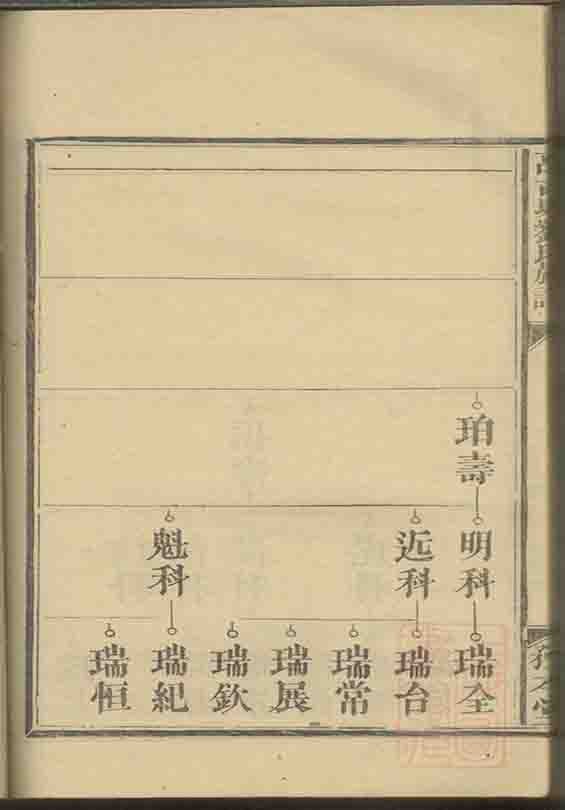 珀壽
明科
近科
魁科
瑞全
瑞台
瑞常
瑞展
瑞欽
瑞紀
瑞恒